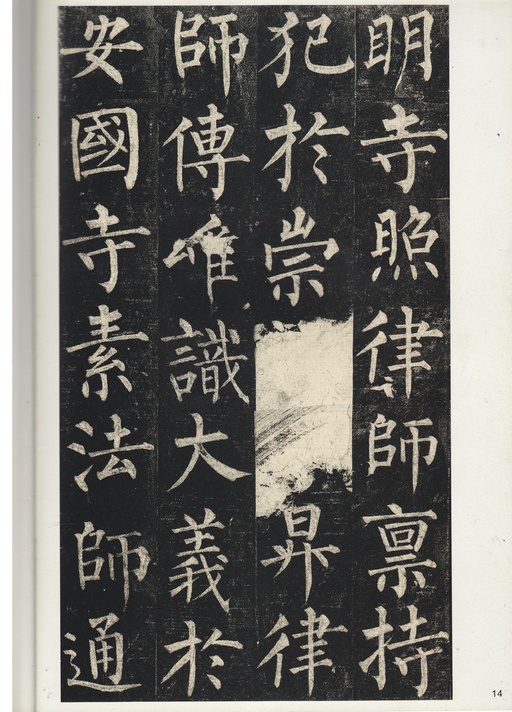 明寺照律師禀持
犯於崇昇律
師傳唯識大義於
安國寺素法師通
14